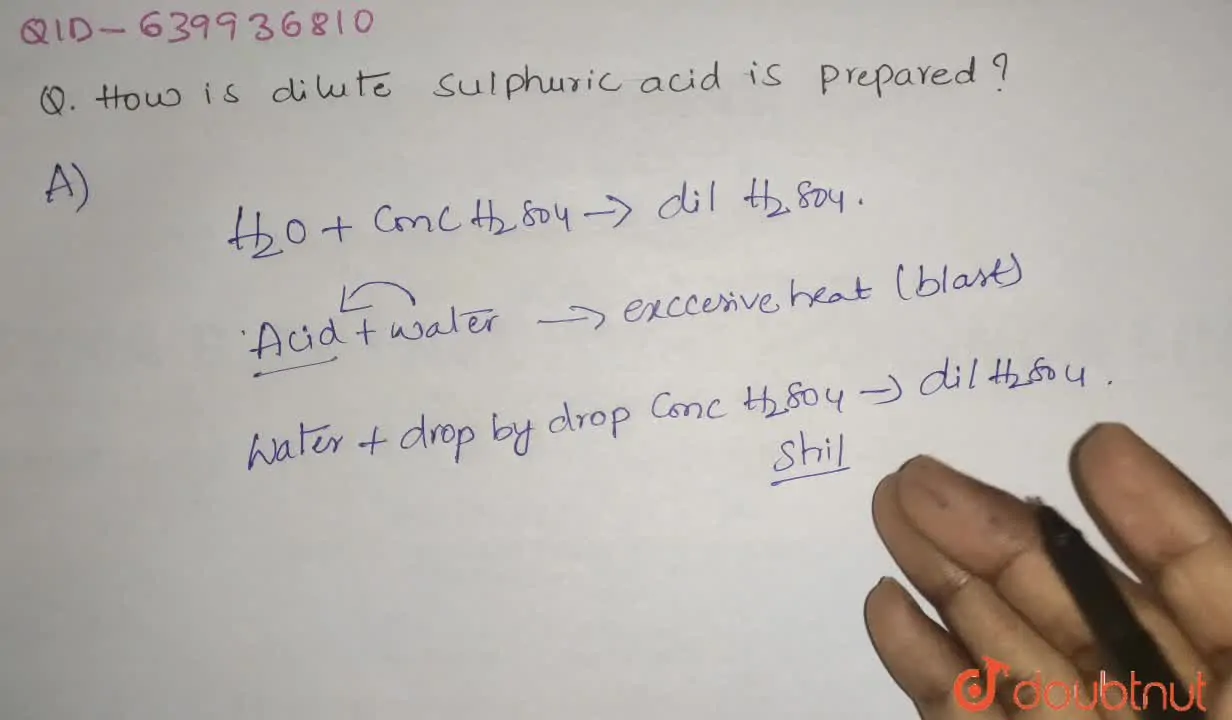 QID-639936810
Q. How is dilute sulphuric acid is prepared?
A)
H2O + Conc H2SO4 → dil H2SO4.
Acid + water → exccesive heat (blast)
Water + drop by drop Conc H2SO4 → dil H2SO4.
Stril
doubtnut